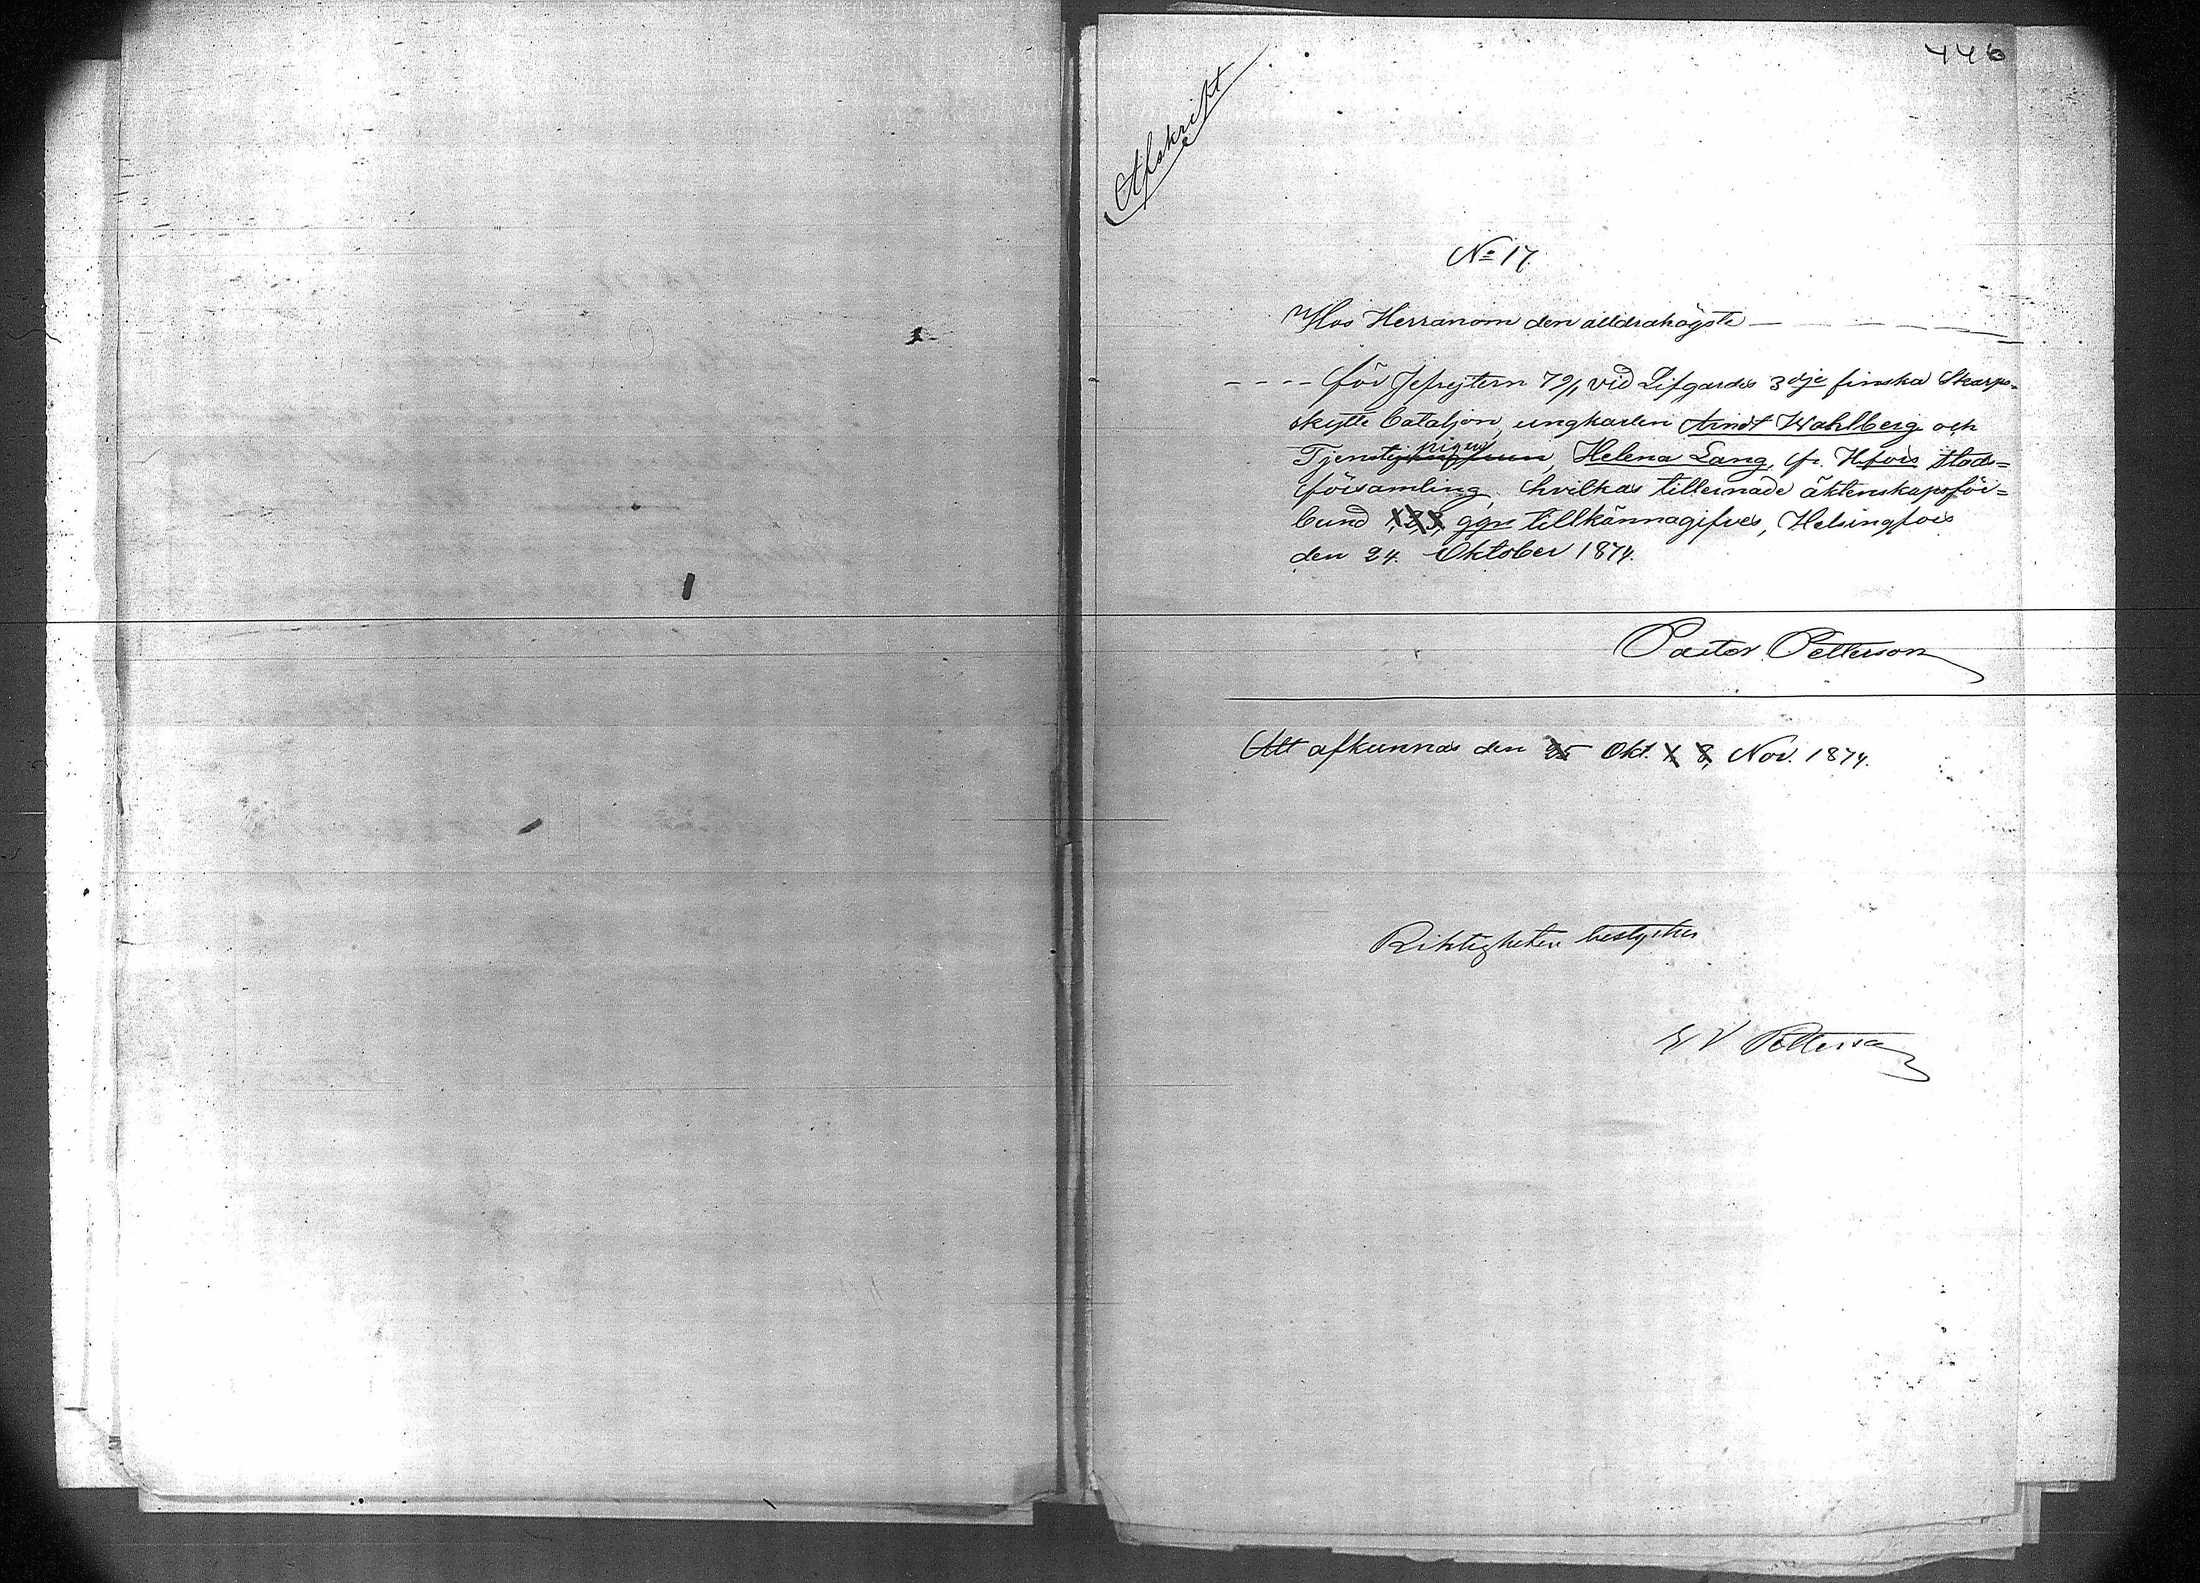 446
Afskrift
No 17.
Hos Herranom den alldrahögste
för Jefrejtern 79/1 vid Lifgardes 3dje finska Skarp-
skytte bataljon, ungkarlen Arndt Wahlberg och
Tjenstepigan, Helena Lang, fr. Hfors Stads=
församling, hvilkas tillernade äktenskapsför=
bund 1, 2, 3, ggn tillkännagifves, Helsingfors
den 24. Oktober 1874.
Pastor Petterson
Att afkunnas den 25 Okt. 1. 8, Nov. 1874.
Riktigheten bestyrker
V Petterson